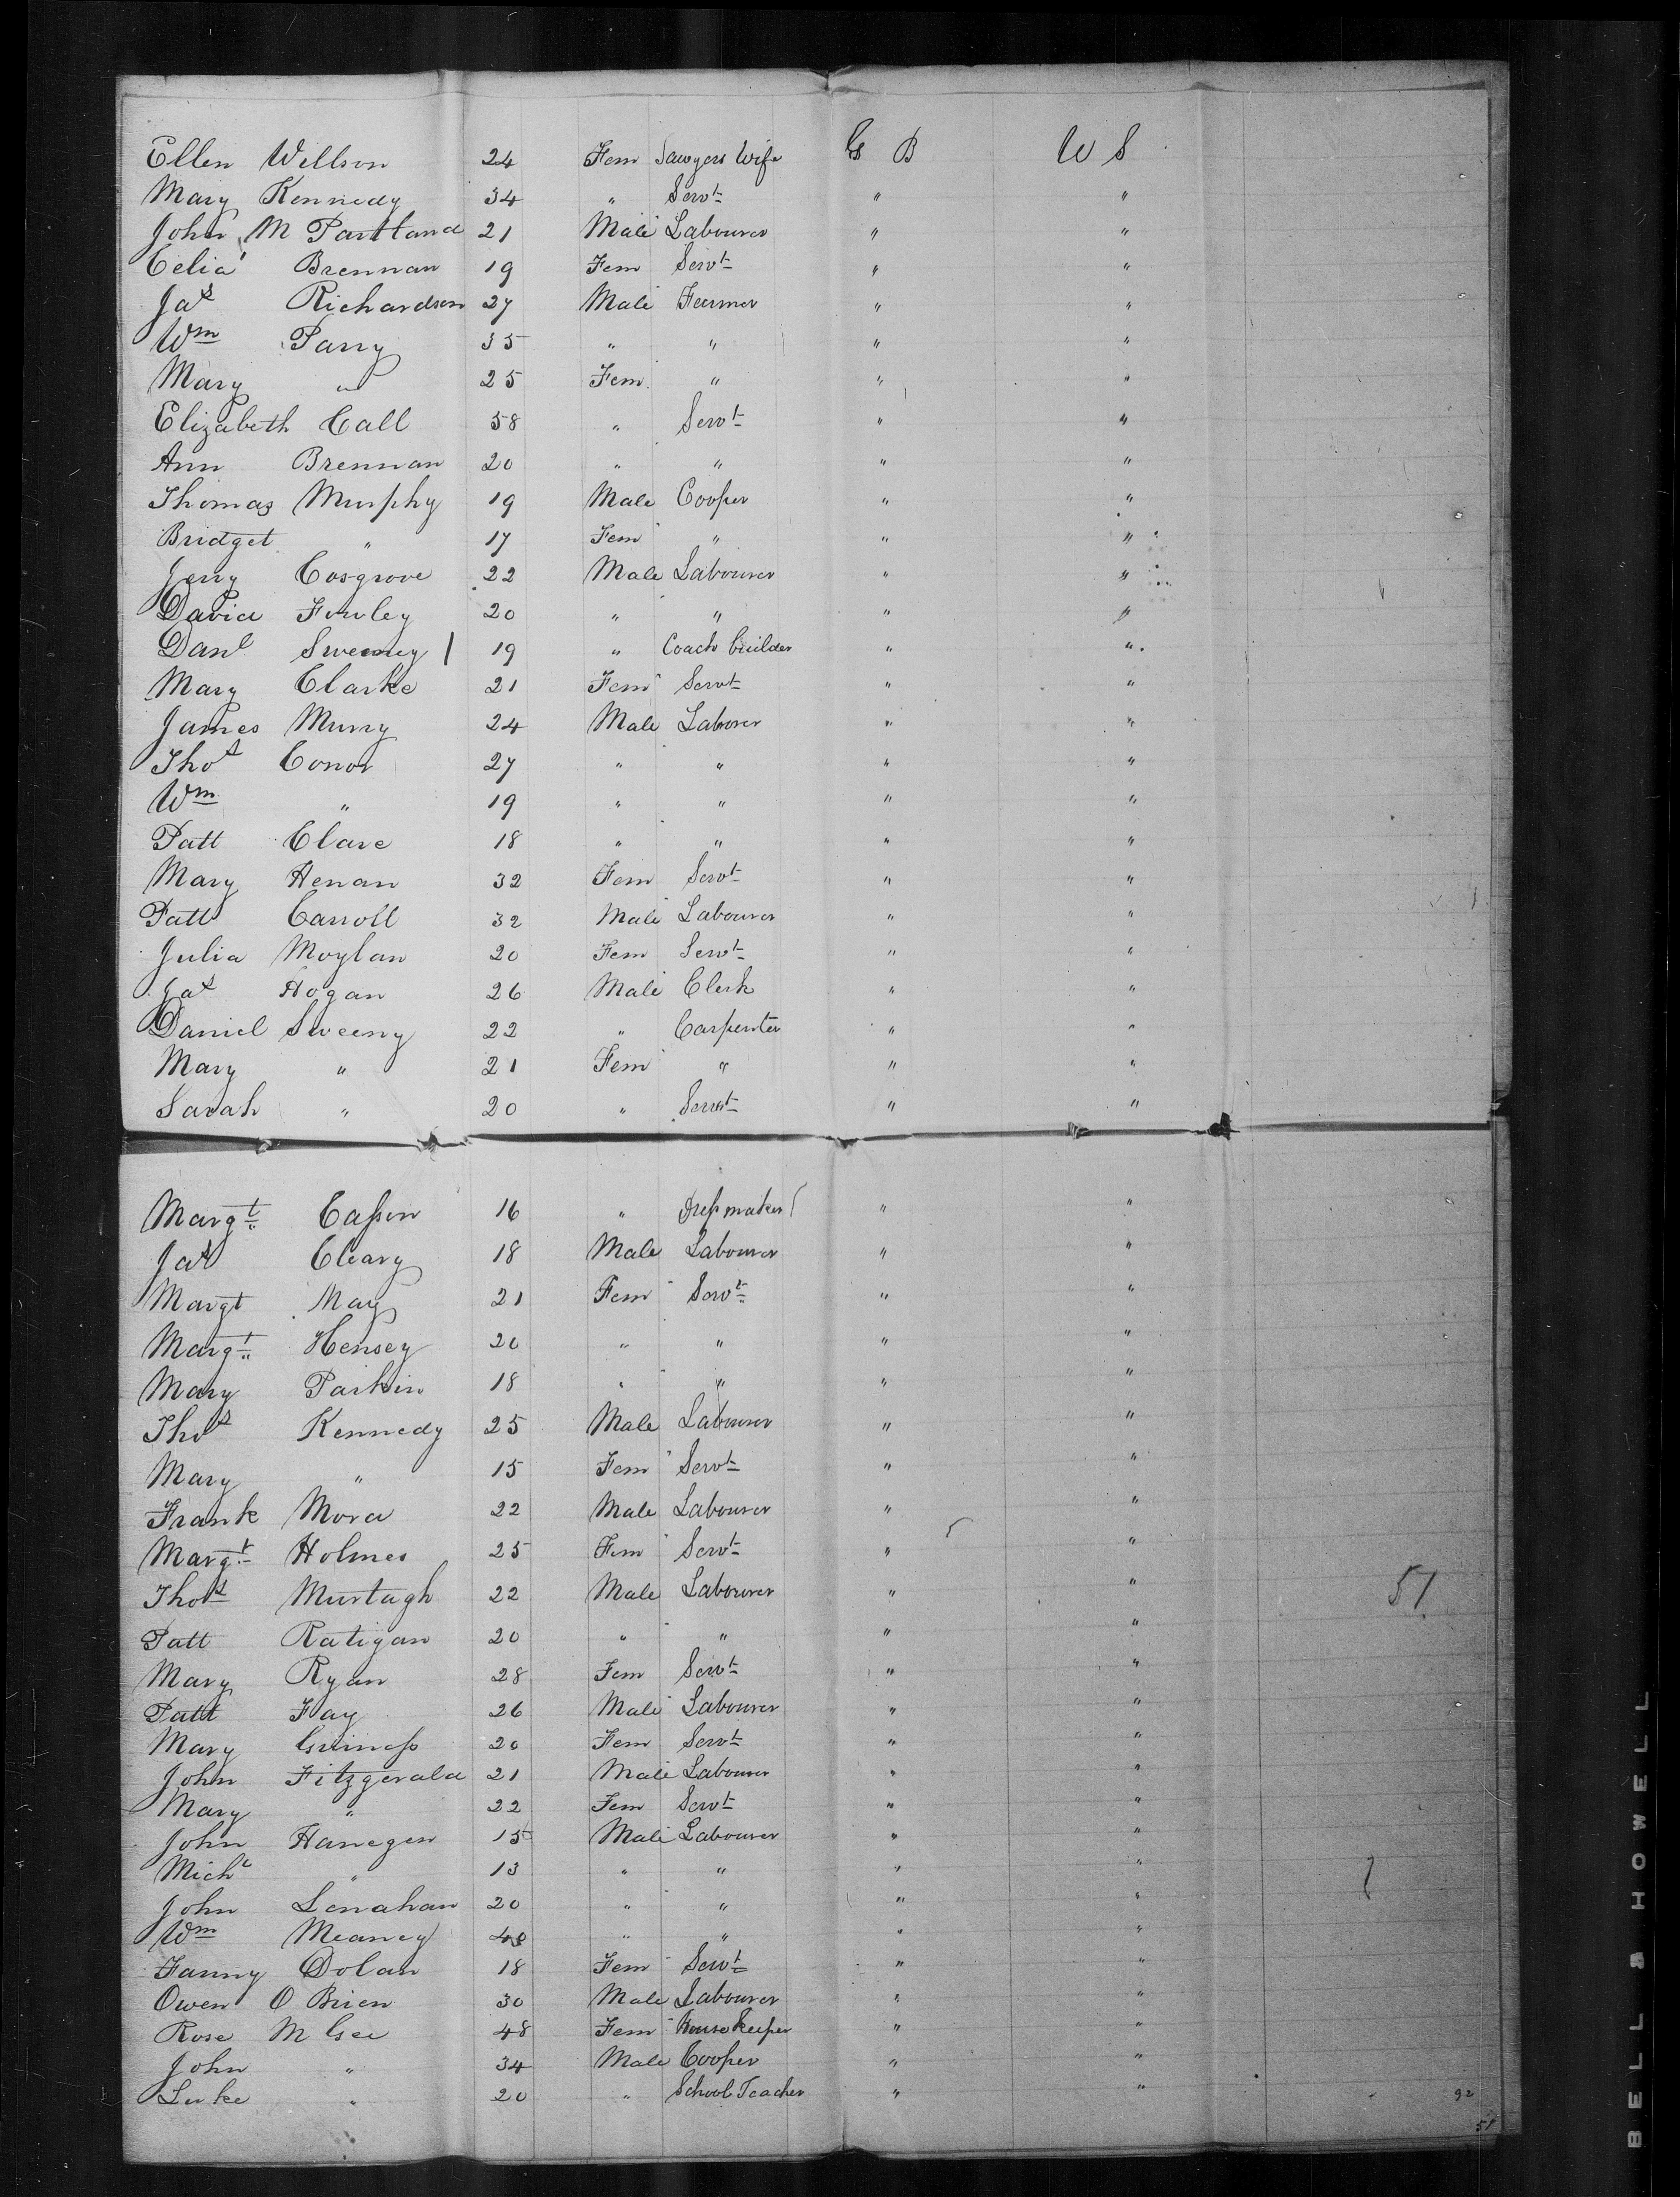 Ellen Wellson 24 Fem Sawyers Wife G B U S
Mary Kennedy 34 " Servt " "
John M Partland 21 Male Labourer " "
Celia Brennan 19 Fem Servt " "
Jas Richardson 27 Male Farmer " "
Wm Parry 35 " " " "
Mary " 25 Fem " " "
Elizabeth Call 58 " Servt " "
Ann Brennan 20 " " " "
Thomas Murphy 19 Male Cooper " "
Bridget " 17 Fem " " "
Jerry Cosgrove 22 Male Labourer " "
David Fowley 20 " " " "
Danl Sweeney 19 " Coach builder " "
Mary Clarke 21 Fem Servt " "
James Murry 24 Male Laborer " "
Thos Conor 27 " " " "
Wm " 19 " " " "
Patt Clare 18 " " " "
Mary Henan 32 Fem Servt " "
Patt Carroll 32 Male Labourer " "
Julia Moylan 20 Fem Servt " "
Jas Hogan 26 Male Clerk " "
Daniel Sweeny 22 " Carpenter " "
Mary " 21 Fem " " "
Sarah " 20 " Servt " "
Margt Casson 16 " Dressmaker " "
Jas Cleary 18 Male Labourer " "
Margt May 21 Fem Servt " "
Margt Hensey 20 " " " "
Mary Parkin 18 " " " "
Thos Kennedy 25 Male Labourer " "
Mary " 15 Fem Servt " "
Frank Mora 22 Male Labourer " "
Margt Holmes 25 Fem Servt " "
Thos Murtagh 22 Male Labourer " " 51
Patt Ratigan 20 " " " "
Mary Ryan 28 Fem Servt " "
Patt Fay 26 Male Labourer " "
Mary Guiness 20 Fem Servt " "
John Fitzgerald 21 Male Labourer " "
Mary " 22 Fem Servt " "
John Hanegen 15 Male Labourer " "
Michl " 13 " " " "
John Lenahan 20 " " " "
Wm Meaney " " " "
Fanny Dolan 18 Fem Servt " "
Owen O Brien 30 Male Labourer " "
Rose M Gee 48 Fem House Keeper " "
John " 34 Male Cooper " "
Luke " 20 " School Teacher " " 92
51
BELL & HOWELL